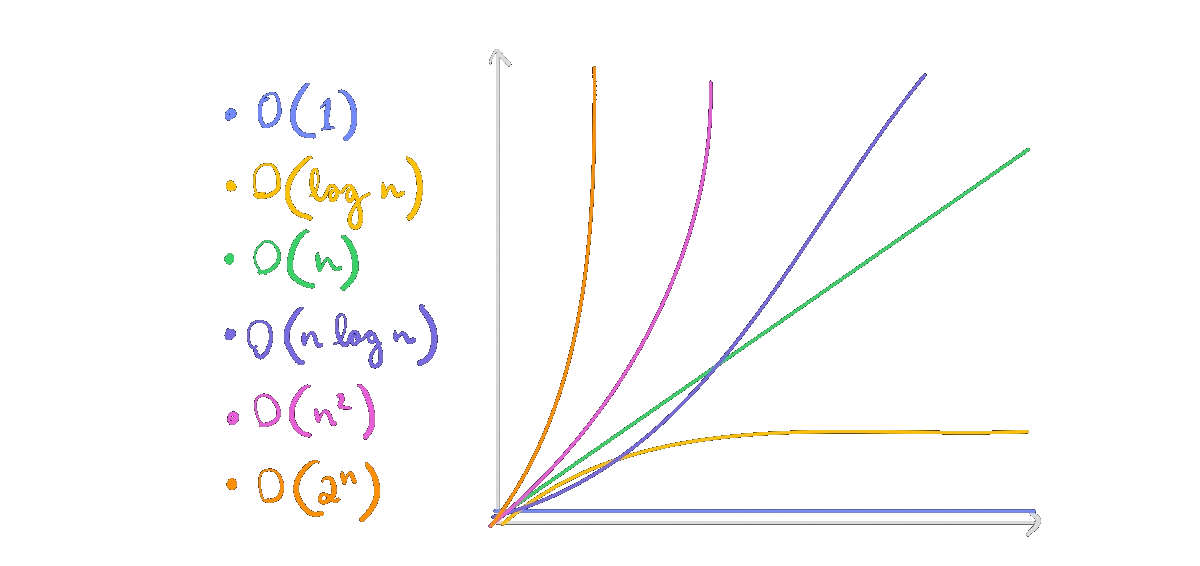 • O(1)
• O(log n)
• O(n)
• O(n log n)
• O(n²)
• O(2ⁿ)